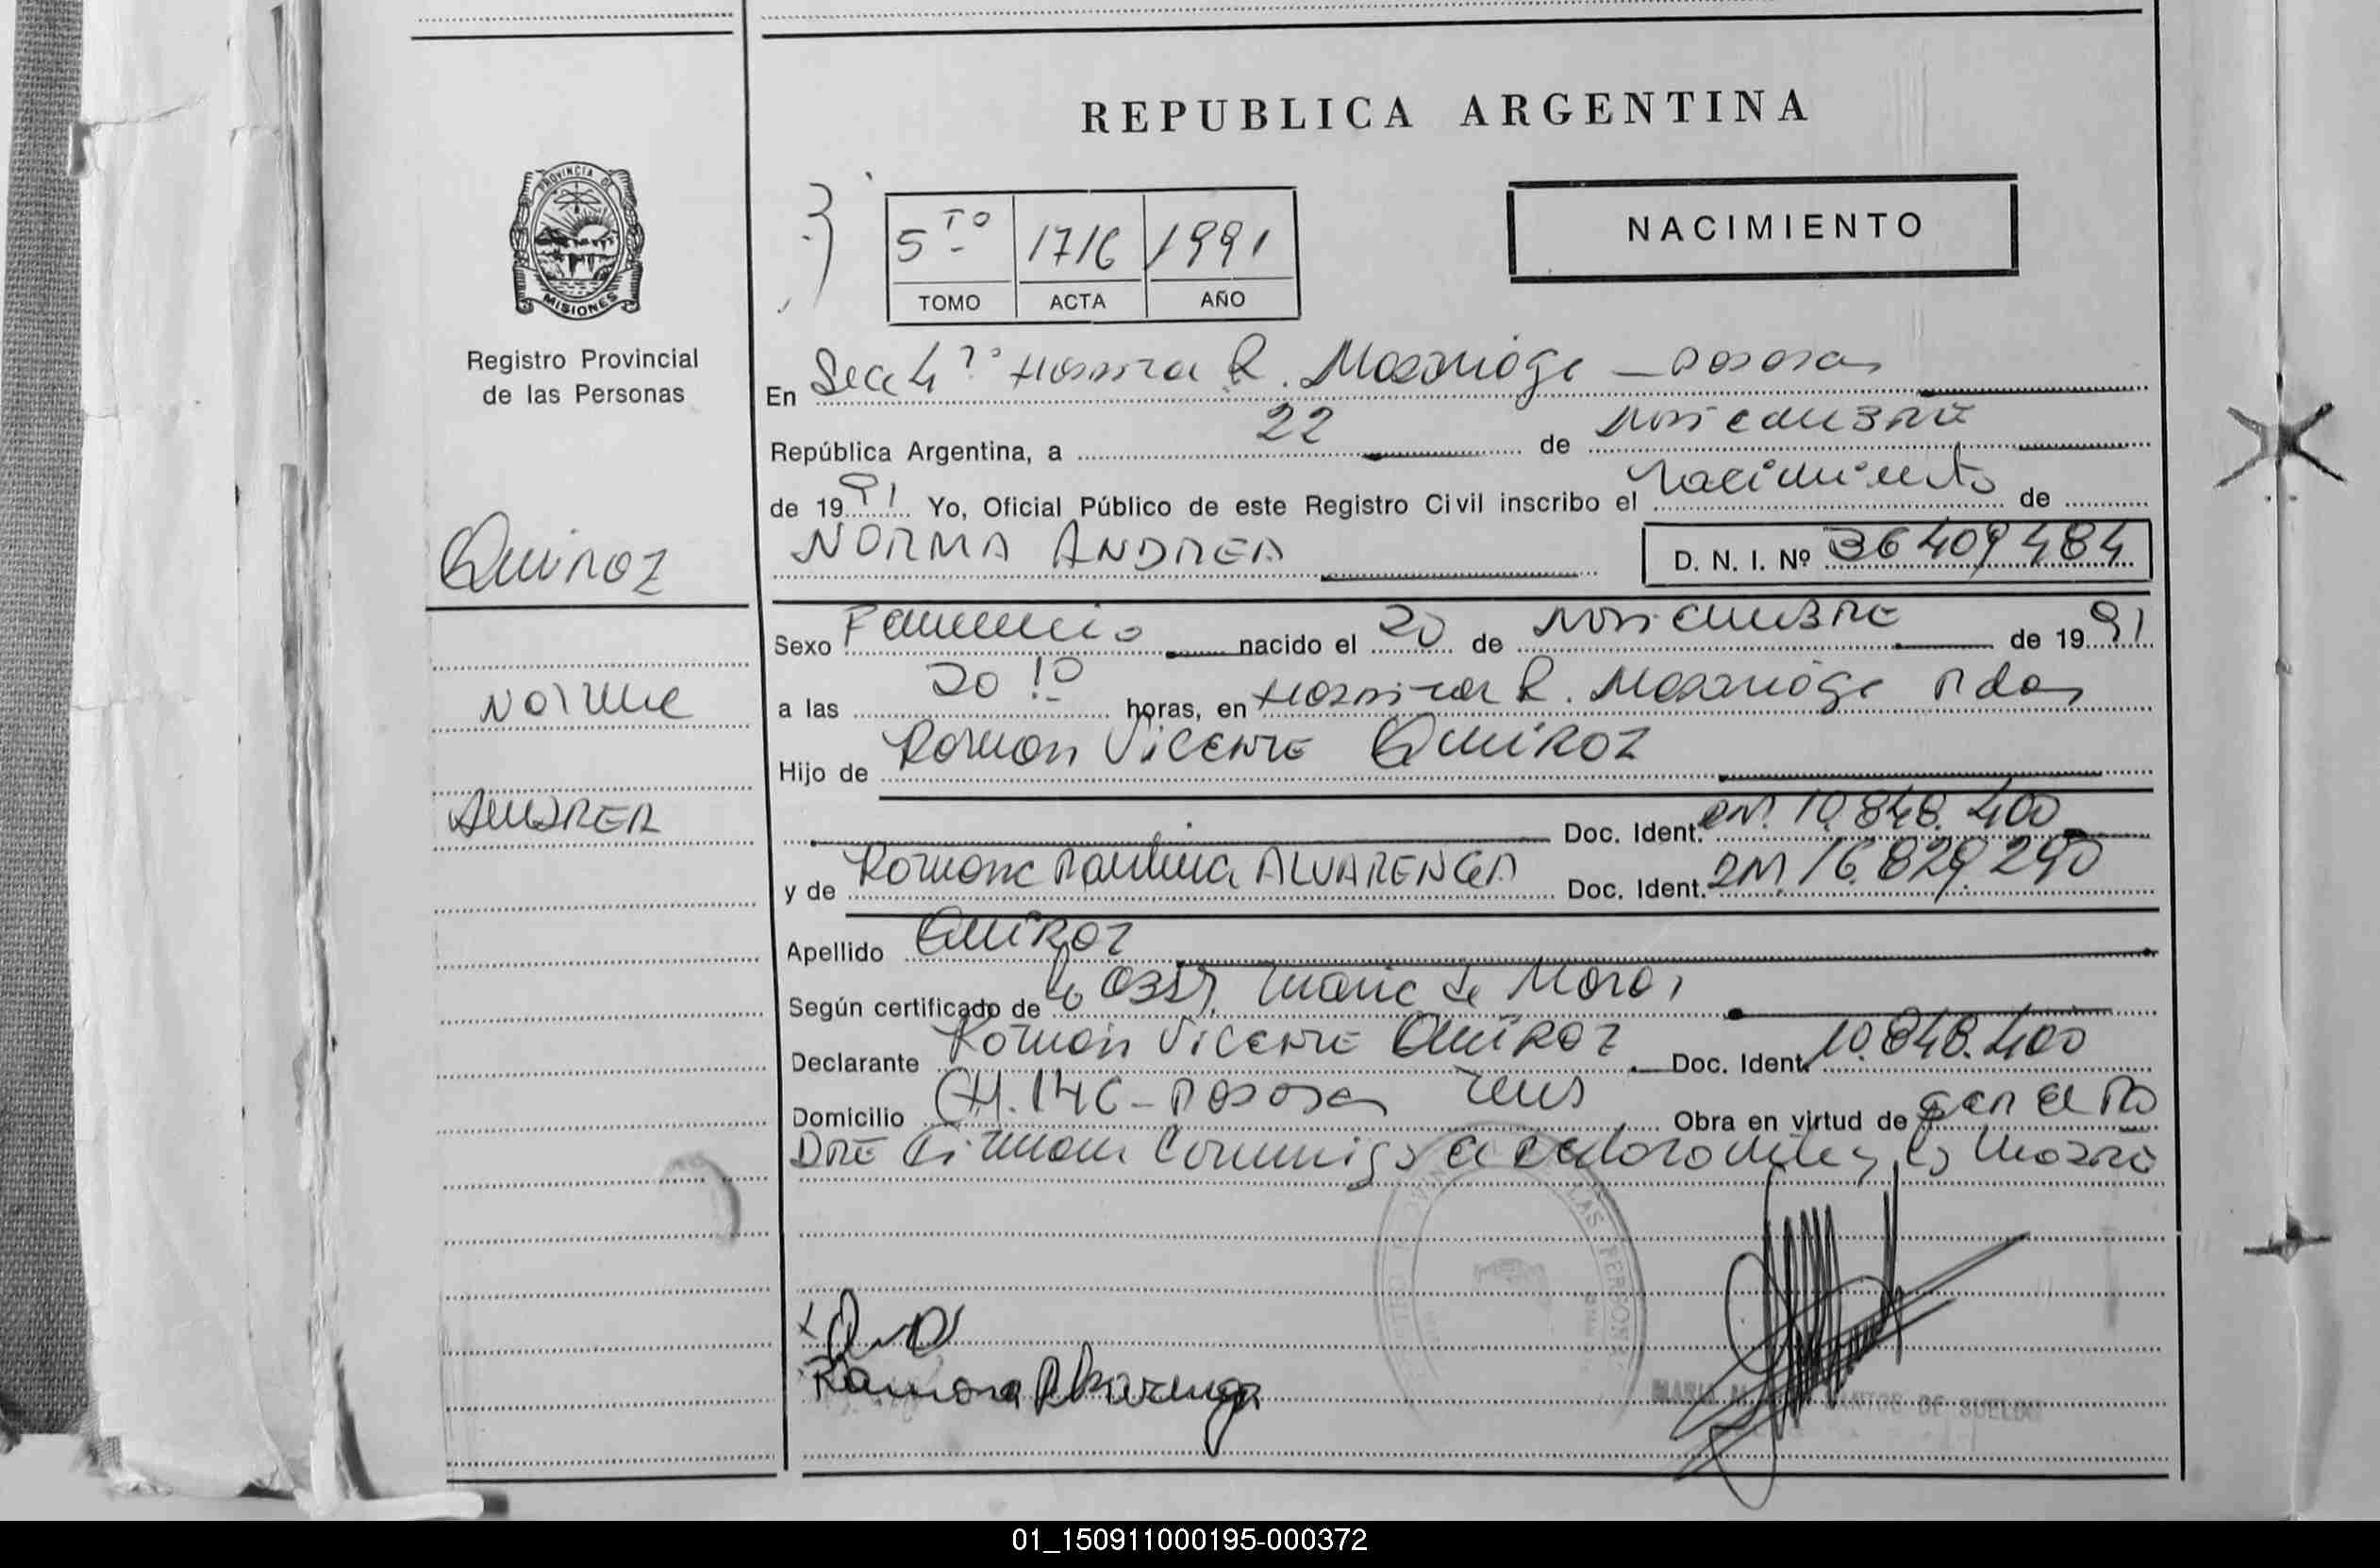 REPUBLICA ARGENTINA
NACIMIENTO
PROVINCIA DE
MISIONES
Registro Provincial
de las Personas
5TO 1716 1991
TOMO ACTA AÑO
En Secc 4ª Hospital R. Madariaga - Posadas
República Argentina, a 22 de noviembre
de 1991 Yo, Oficial Público de este Registro Civil inscribo el nacimiento de
NORMA ANDREA D. N. I. Nº 36409484
Quiroz
Norma
Andrea
Sexo Femenino nacido el 20 de noviembre de 1991
a las 20 10 horas, en Hospital R. Madariaga Pdas
Hijo de Ramon Vicente Quiroz
Doc. Ident. DNI. 10.848.400
y de Ramona Paulina ALVARENGA Doc. Ident. DNI. 16.829.290
Apellido Quiroz
Según certificado de la Obst. Maria de
Declarante Ramon Vicente Quiroz Doc. Ident. 10.848.400
Domicilio CH. 146 - Posadas Mnes Obra en virtud de ser el Pa
dre Firman conmigo el declarante y la madre
LAS PERSONAS
Ramona Alvarenga
SANTOS DE SUELDO
01_150911000195-000372